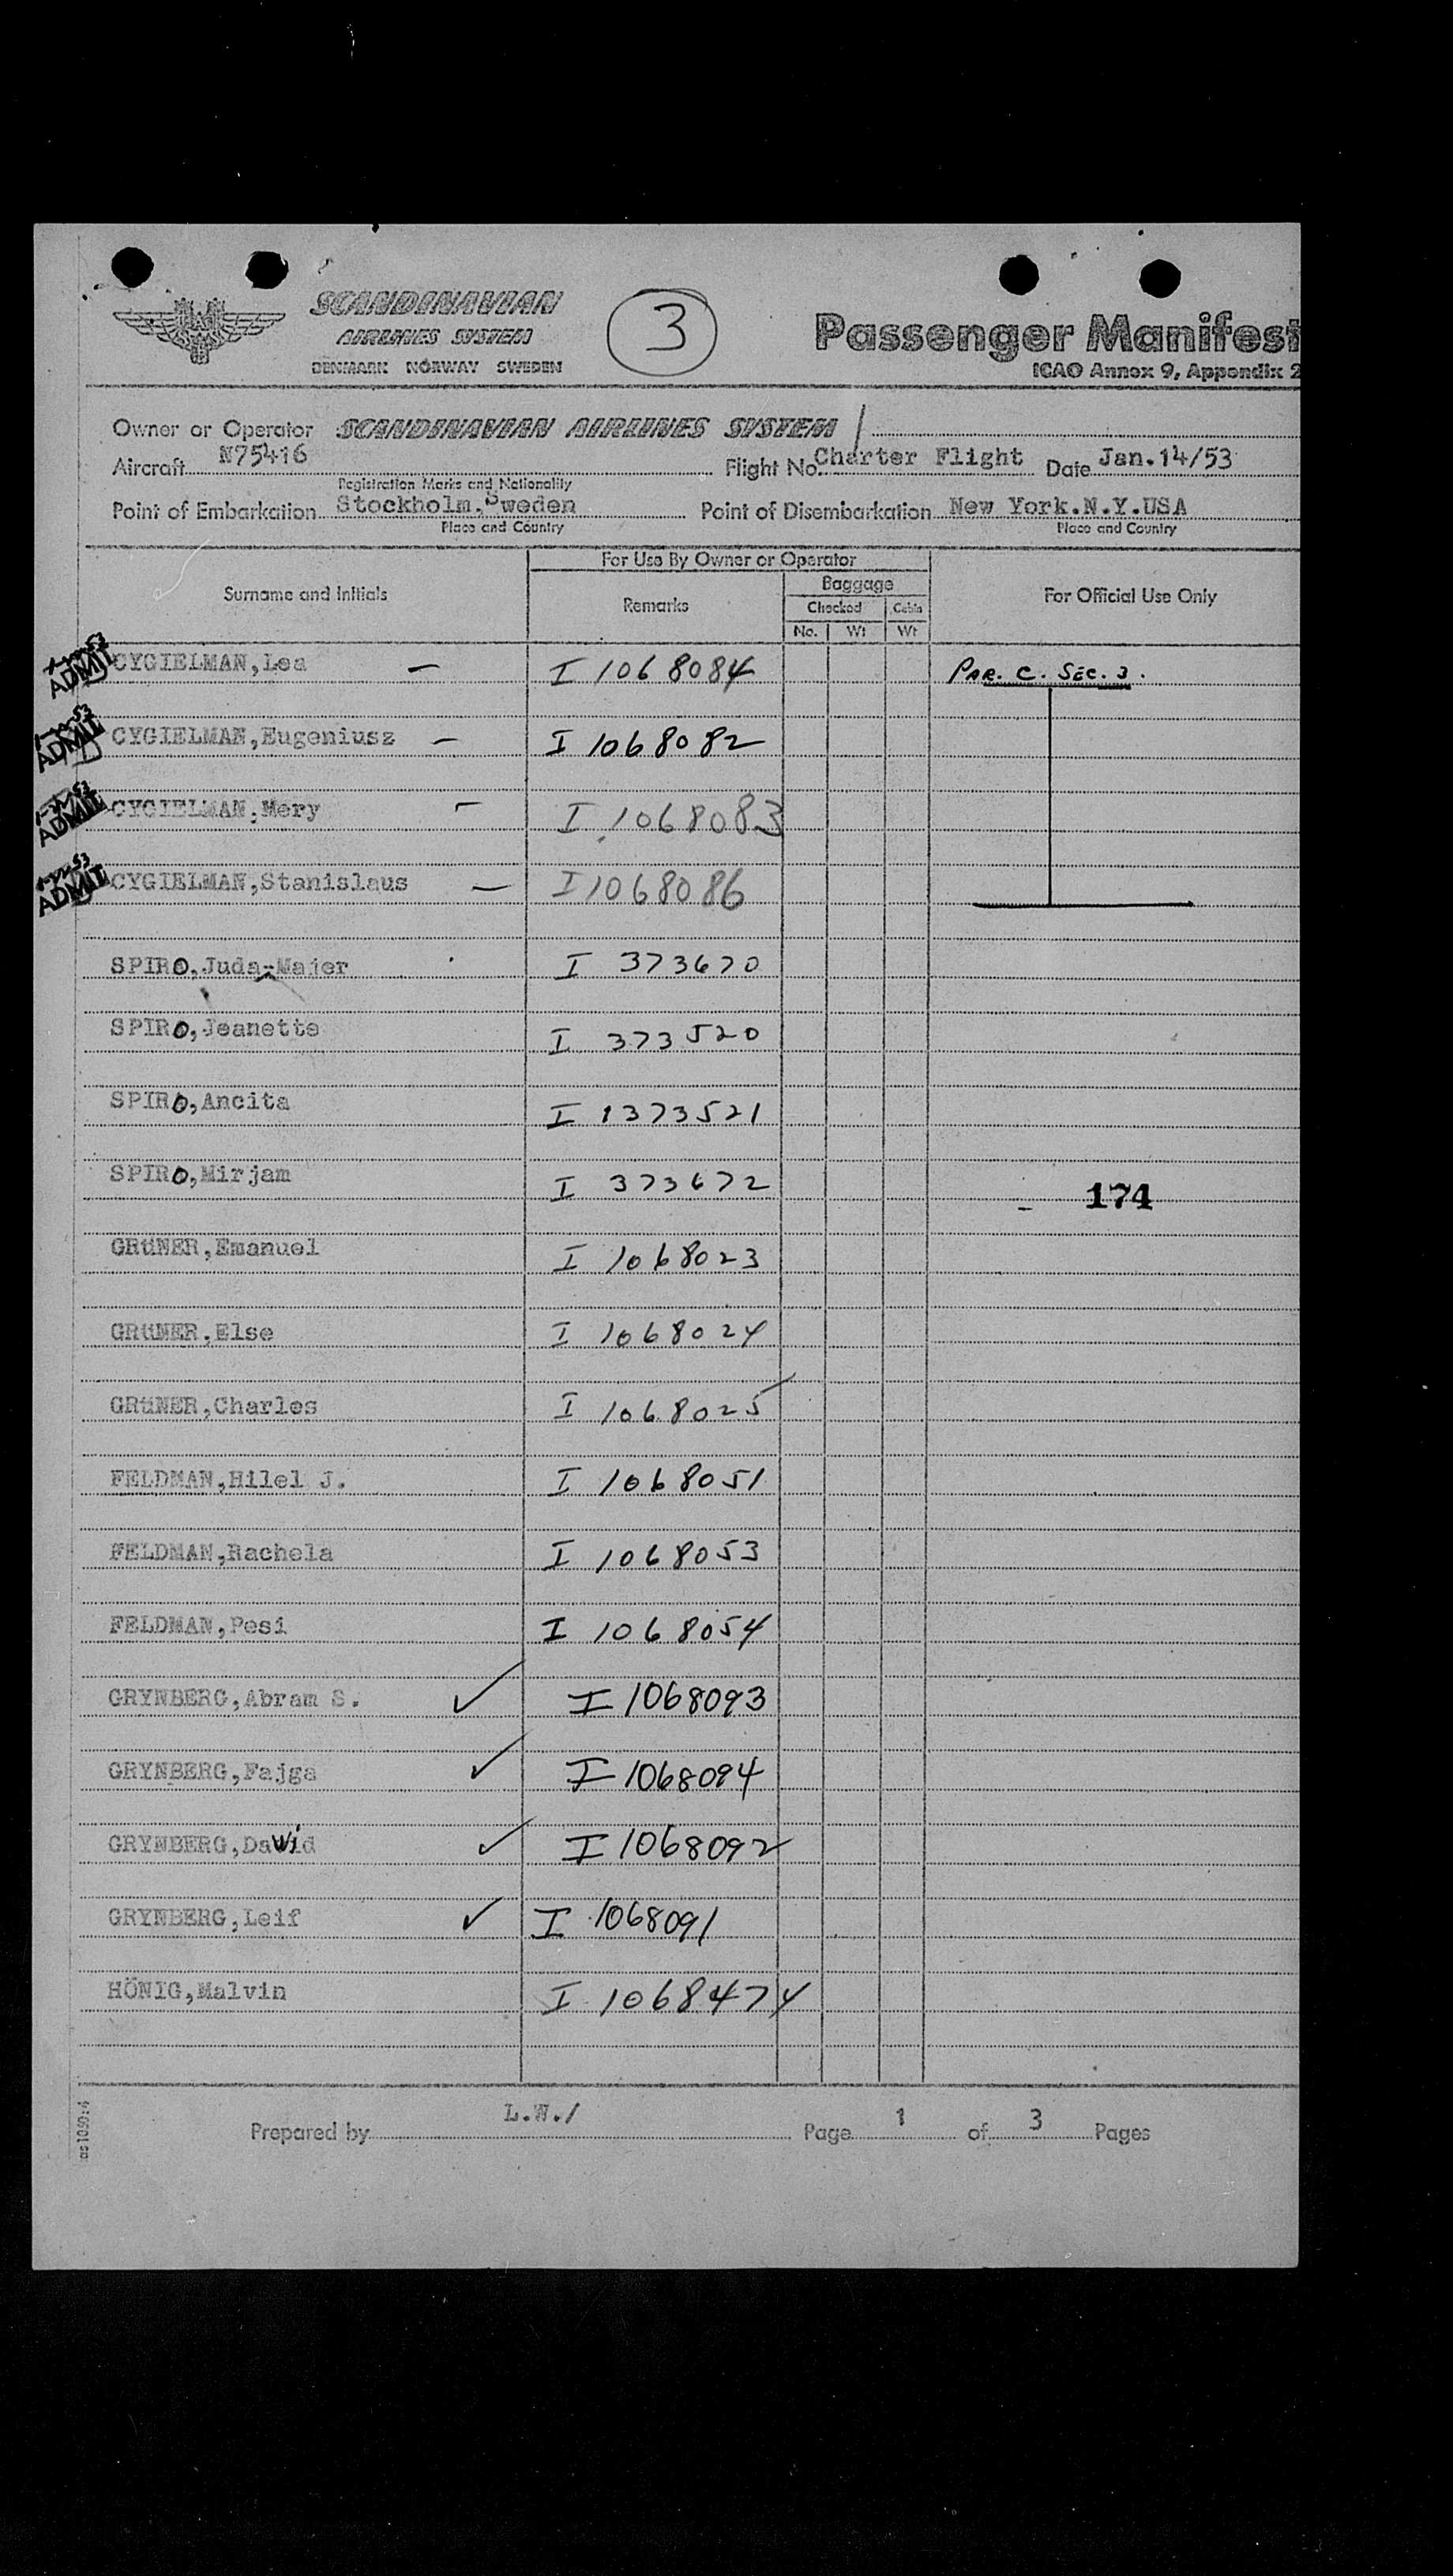 SCANDINAVIAN
AIRLINES SYSTEM
DENMARK NORWAY SWEDEN
3
Passenger Manifest
ICAO Annex 9, Appendix 2
Owner or Operator SCANDINAVIAN AIRLINES SYSTEM /
Aircraft N75416 Flight No. Charter Flight Date Jan.14/53
Registration Marks and Nationality
Point of Embarkation Stockholm.Sweden Point of Disembarkation New York.N.Y.USA
Place and Country Place and Country
For Use By Owner or Operator
Surname and Initials Remarks Baggage For Official Use Only
Checked Cabin
No. Wt Wt
ADMIT CYGIELMAN,Lea – I 1068084 PAR. C. SEC. 3.
ADMIT CYGIELMAN,Eugeniusz – I 1068082
ADMIT CYGIELMAN,Mery – I 1068083
ADMIT CYGIELMAN,Stanislaus – I 1068086
SPIRO,Juda-Majer I 373670
SPIRO,Jeanette I 373520
SPIRO,Ancita I 1373521
SPIRO,Mirjam I 373672
174
GRüNER,Emanuel I 1068023
GRüNER,Else I 1068024
GRüNER,Charles I 1068025
FELDMAN,Hilel J. I 1068051
FELDMAN,Rachela I 1068053
FELDMAN,Pesi I 1068054
GRYNBERG,Abram S. ✓ I 1068093
GRYNBERG,Fajga ✓ I 1068094
GRYNBERG,Dawid ✓ I 1068092
GRYNBERG,Leif ✓ I 1068091
HÖNIG,Malvin I 1068474
Prepared by L.W./ Page 1 of 3 Pages